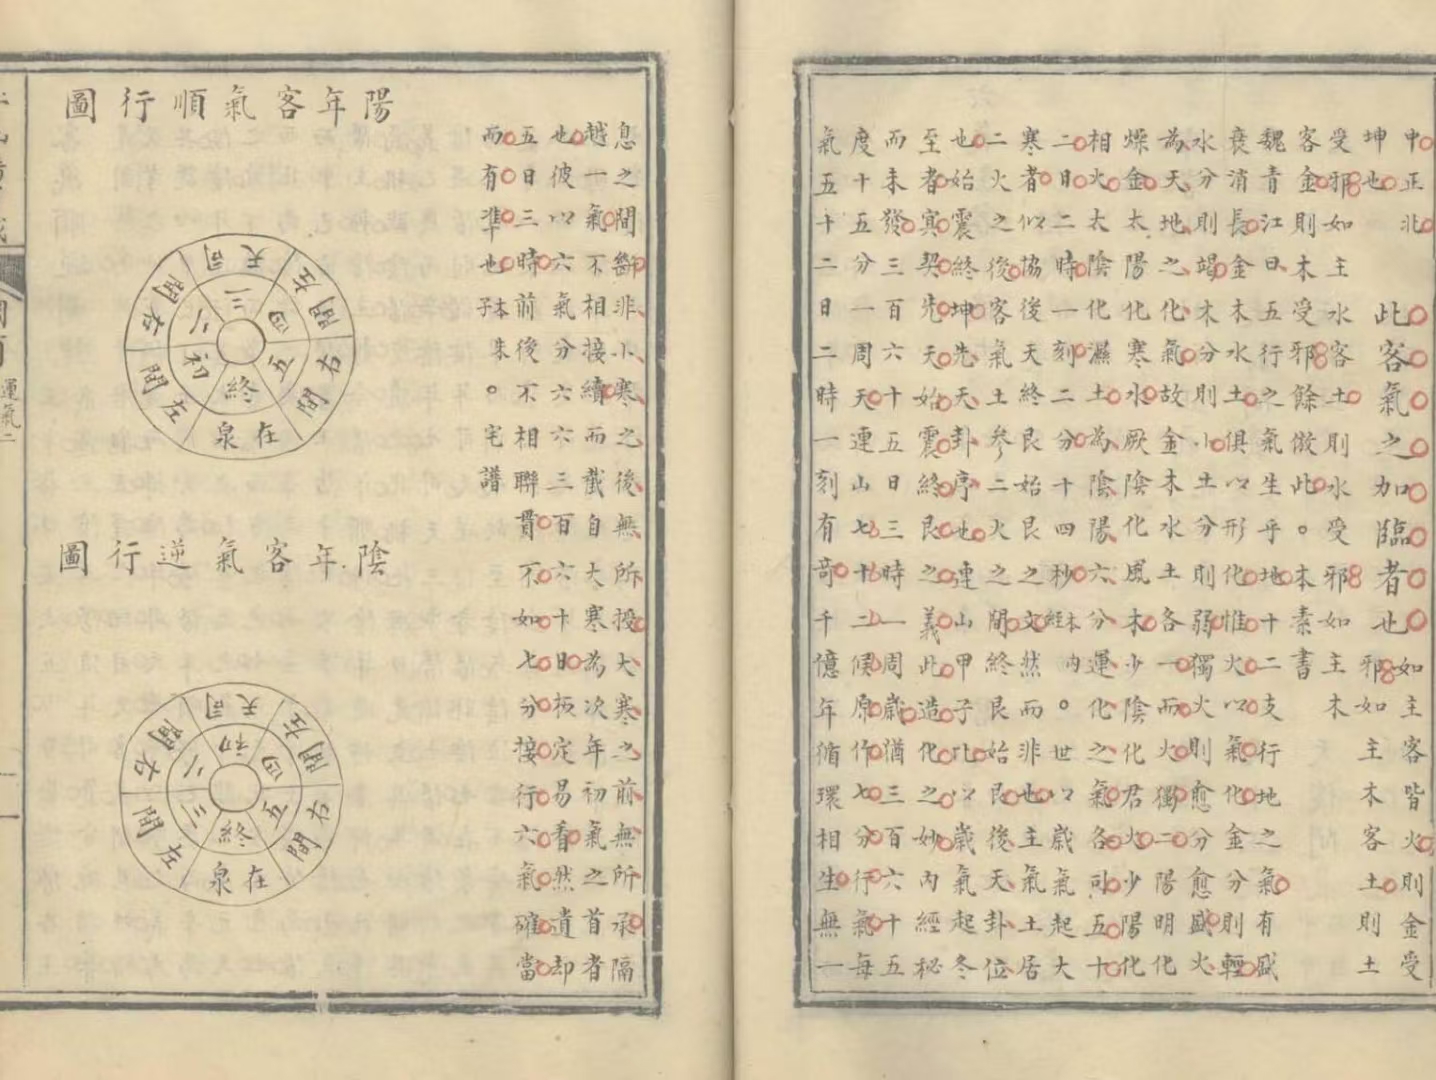 中正北
坤也
此客氣之加臨者也
如主客皆火則金受
邪如主木客土則土
受邪如主水客土則水受邪如主木
客金則木受邪餘倣此。本素書
魏青江曰五行之氣生乎地十二支行地之氣有盛
衰消長金木水土俱以形化惟火以氣化金分則輕
水分則竭木分則小土分則弱獨火則愈分愈盛火
為天地之化氣故金木水土各一而火獨二陽明化
燥金太陽化寒水厥陰化風木少陰化君火少陽化
相火太陰化濕土為陰陽六分運化之氣各司五十
二日二時一刻二分十四秒本内經。世以歲氣起大
寒者似協後天終艮始艮之文然而非也主氣土居
二火之後客氣土參二火之間終艮始艮後天卦位
也始震終坤先天卦序也連山甲子比以歲氣起冬
至者寞契先天始震終艮之義此造化之妙内經秘
而未發三百六十五日三時一周歲猶三百六十五
度十五分一周天連山七十二候原作七分行氣每
氣五十二日二時一刻有奇千億年循環相生無一
息之間斷非小寒之後無所授大寒之前無所承隔
越一氣不相接續而截自大寒為次年初氣之首者
也彼以六氣分六六三百六十日板定易看然遺却
五日三時前後不相聯貫不如七分接行六氣確當
而有準也本朱子。宅譜
陽年客氣順行圖
司天
左間
右間
在泉
左間
右間
三
四
五
終
初
二
陰年客氣逆行圖
司天
左間
右間
在泉
左間
右間
初
四
五
終
三
二
運氣二